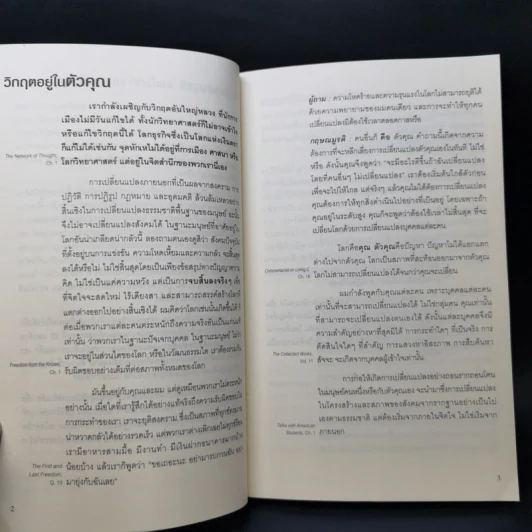 วิกฤตอยู่ในตัวคุณ
เรากำลังเผชิญกับวิกฤตอันใหญ่หลวง ที่นักการ
เมืองไม่มีวันแก้ไขได้ ทั้งนักวิทยาศาสตร์ก็ไม่อาจเข้าใจ
หรือแก้ไขวิกฤตนี้ได้ โลกธุรกิจซึ่งเป็นโลกแห่งเงินตรา
ก็แก้ไม่ได้เช่นกัน จุดหักเหไม่ได้อยู่ที่การเมือง ศาสนา หรือ
โลกวิทยาศาสตร์ แต่อยู่ในจิตสำนึกของพวกเรานี่เอง
The Network of Thought,
Ch. 1
การเปลี่ยนแปลงภายนอกที่เป็นผลจากสงคราม การ
ปฏิวัติ การปฏิรูป กฎหมาย และอุดมคติ ล้วนล้มเหลวอย่าง
สิ้นเชิงในการเปลี่ยนแปลงธรรมชาติพื้นฐานของมนุษย์ ฉะนั้น
จึงไม่อาจเปลี่ยนแปลงสังคมได้ ในฐานะมนุษย์ที่อาศัยอยู่ใน
โลกอันน่าเกลียดน่ากลัวนี้ ลองถามตนเองดูสิว่า สังคมปัจจุบัน
ที่ตั้งอยู่บนการแข่งขัน ความโหดเหี้ยมและความกลัว จะสิ้นสุด
ลงได้หรือไม่ ไม่ใช่สิ้นสุดโดยเป็นเพียงข้อสรุปทางปัญญาความ
คิด ไม่ใช่เป็นแค่ความหวัง แต่เป็นการจบสิ้นลงจริงๆ เพื่อ
ที่จิตใจจะสดใหม่ ไร้เดียงสา และสามารถสรรค์สร้างโลกที่
แตกต่างออกไปอย่างสิ้นเชิงได้ ผมคิดว่าโลกเช่นนั้นเกิดขึ้นได้
ต่อเมื่อพวกเราแต่ละคนตระหนักถึงความจริงอันเป็นแก่นแท้
เท่านั้น ว่าพวกเราในฐานะปัจเจกบุคคล ในฐานะมนุษย์ ไม่ว่า
เราจะอยู่ในส่วนใดของโลก หรือในวัฒนธรรมใด เราต้องร่วมกัน
รับผิดชอบอย่างเต็มที่ต่อสภาพทั้งหมดของโลก
Freedom from the Known,
Ch. 1
มันขึ้นอยู่กับคุณและผม แต่ดูเหมือนพวกเราไม่ตระหนัก
อย่างนั้น เมื่อใดที่เรารู้สึกได้อย่างแท้จริงถึงความรับผิดชอบใน
การกระทำของเรา เราจะยุติสงคราม ซึ่งเป็นสภาพที่ทุกข์ทรมาน
น่าหวาดกลัวได้อย่างรวดเร็ว แต่พวกเราต่างเพิกเฉยไม่ทุกข์ร้อน
เรามีอาหารสามมื้อ มีงานทำ มีเงินฝากธนาคารมากบ้าง
น้อยบ้าง แล้วเราก็พูดว่า "ขอเถอะนะ อย่ามารบกวนฉัน อย่า
มายุ่งกับฉันเลย"
The First and
Last Freedom,
Q. 10
2
ผู้ถาม : ความโหดร้ายและความรุนแรงในโลกไม่สามารถยุติได้
ด้วยความพยายามของผมคนเดียว และการจะทำให้ทุกคน
เปลี่ยนแปลงมิต้องใช้เวลาตลอดกาลหรือ
กฤษณมูรติ : คนอื่นก็ คือ ตัวคุณ คำถามนี้เกิดจากความ
ต้องการที่จะหลีกเลี่ยงการเปลี่ยนแปลงตัวคุณเองในทันที ไม่ใช่
หรือ ดังนั้นคุณจึงพูดว่า "จะมีอะไรดีขึ้นถ้าฉันเปลี่ยนแปลง
โดยที่คนอื่นๆ ไม่เปลี่ยนแปลง" เราต้องเริ่มต้นใกล้ตัวก่อน
เพื่อจะไปให้ไกล แต่จริงๆ แล้วคุณไม่ได้ต้องการเปลี่ยนแปลง
คุณต้องการให้ทุกสิ่งดำเนินไปอย่างที่เป็นอยู่ โดยเฉพาะถ้า
คุณอยู่ในระดับสูง คุณก็จะพูดว่าต้องใช้เวลาไม่สิ้นสุด ที่จะ
เปลี่ยนโลกด้วยการเปลี่ยนแปลงบุคคลแต่ละคน
โลกคือคุณ ตัวคุณคือปัญหา ปัญหาไม่ได้แยกแตก
ต่างไปจากตัวคุณ โลกเป็นสภาพที่สะท้อนออกมาจากตัวคุณ
โลกไม่สามารถเปลี่ยนแปลงได้จนกว่าคุณจะเปลี่ยน
Commentaries on Living 2,
Ch. 18
ผมกำลังพูดกับคุณแต่ละคน เพราะบุคคลแต่ละคน
เท่านั้นที่จะสามารถเปลี่ยนแปลงได้ ไม่ใช่กลุ่มคน คุณเท่านั้น
ที่สามารถจะเปลี่ยนแปลงตนเองได้ ดังนั้นแต่ละบุคคลจึงมี
ความสำคัญอย่างหาที่สุดมิได้ การกระทำใดๆ ที่เป็นจริง การ
ตัดสินใจใดๆ ที่สำคัญ การแสวงหาอิสรภาพ การสืบค้นหา
สัจจะ จะเกิดจากบุคคลผู้เข้าใจเท่านั้น
The Collected Works,
Vol. 11
การก่อให้เกิดการเปลี่ยนแปลงอย่างถอนรากถอนโคน
ในมนุษย์คนหนึ่งหรือกับตัวคุณเอง จะนำมาซึ่งการเปลี่ยนแปลง
ในโครงสร้างและสภาพของสังคมจากรากฐานอย่างเป็นไป
เองตามธรรมชาติ แต่ต้องเริ่มจากภายในจิตใจ ไม่ใช่เริ่มจาก
ภายนอก
Talks with American
Students, Ch. 1
3